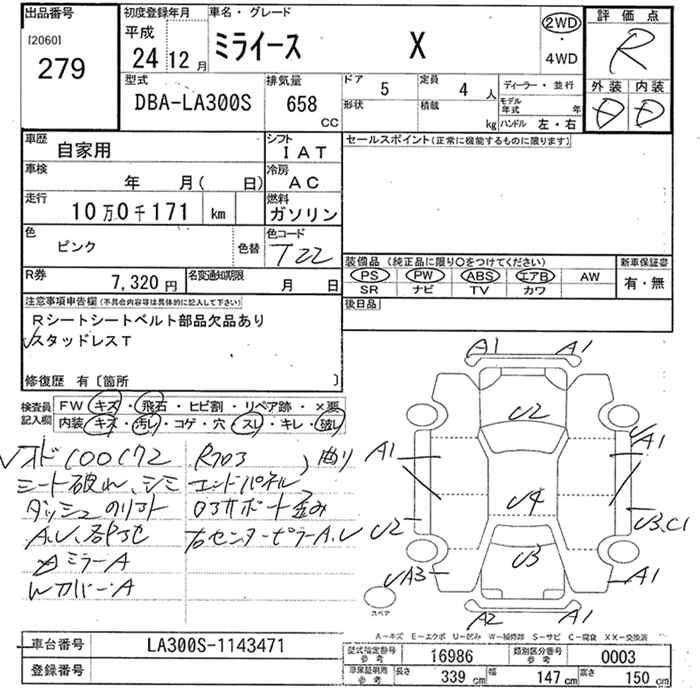 出品番号
[2060]
279
初度登録年月
平成
24 12 月
車名・グレード
ミライース X
2WD
・
4WD
評価点
R
外装 内装
D D
型式
DBA-LA300S
排気量
658
CC
ドア 5
定員 4 人
形状
積載 kg
ディーラー・並行
モデル年式 年
ハンドル 左・右
車歴
自家用
シフト
IAT
セールスポイント(正常に機能するものに限ります)
車検
年 月( 日)
冷房
AC
走行
10万0千171 km
燃料
ガソリン
色
ピンク
色替
色コード
T22
装備品 (純正品に限り○をつけてください)
PS PW ABS エアB AW
SR ナビ TV カワ
新車保証書
有・無
R券
7,320円
名変通知期限
月 日
後日品
注意事項申告欄(不具合内容等は具体的に記入して下さい)
Rシートシートベルト部品欠品あり
スタッドレスT
修復歴 有〔箇所 〕
検査員記入欄
FW キズ・飛石・ヒビ割・リペア跡・×要
内装・キズ・汚レ・コゲ・穴・スレ・キレ・破レ
シート破れ、シミ
エンドパネル
曲り
A,U
ミラーA
カバーA
右センターピラーA,U
A1 A1
U2
A1
A1
U4
U2
U3,C1
U3
UA3
A1
A2 A1
スペア
A－キズ E－エクボ U－凹み W－補修跡 S－サビ C－腐食 XX－交換済
車台番号
LA300S-1143471
登録番号
型式指定番号 参考
16986
類別区分番号 参考
0003
参考
長さ 339 cm
幅 147 cm
高さ 150 cm